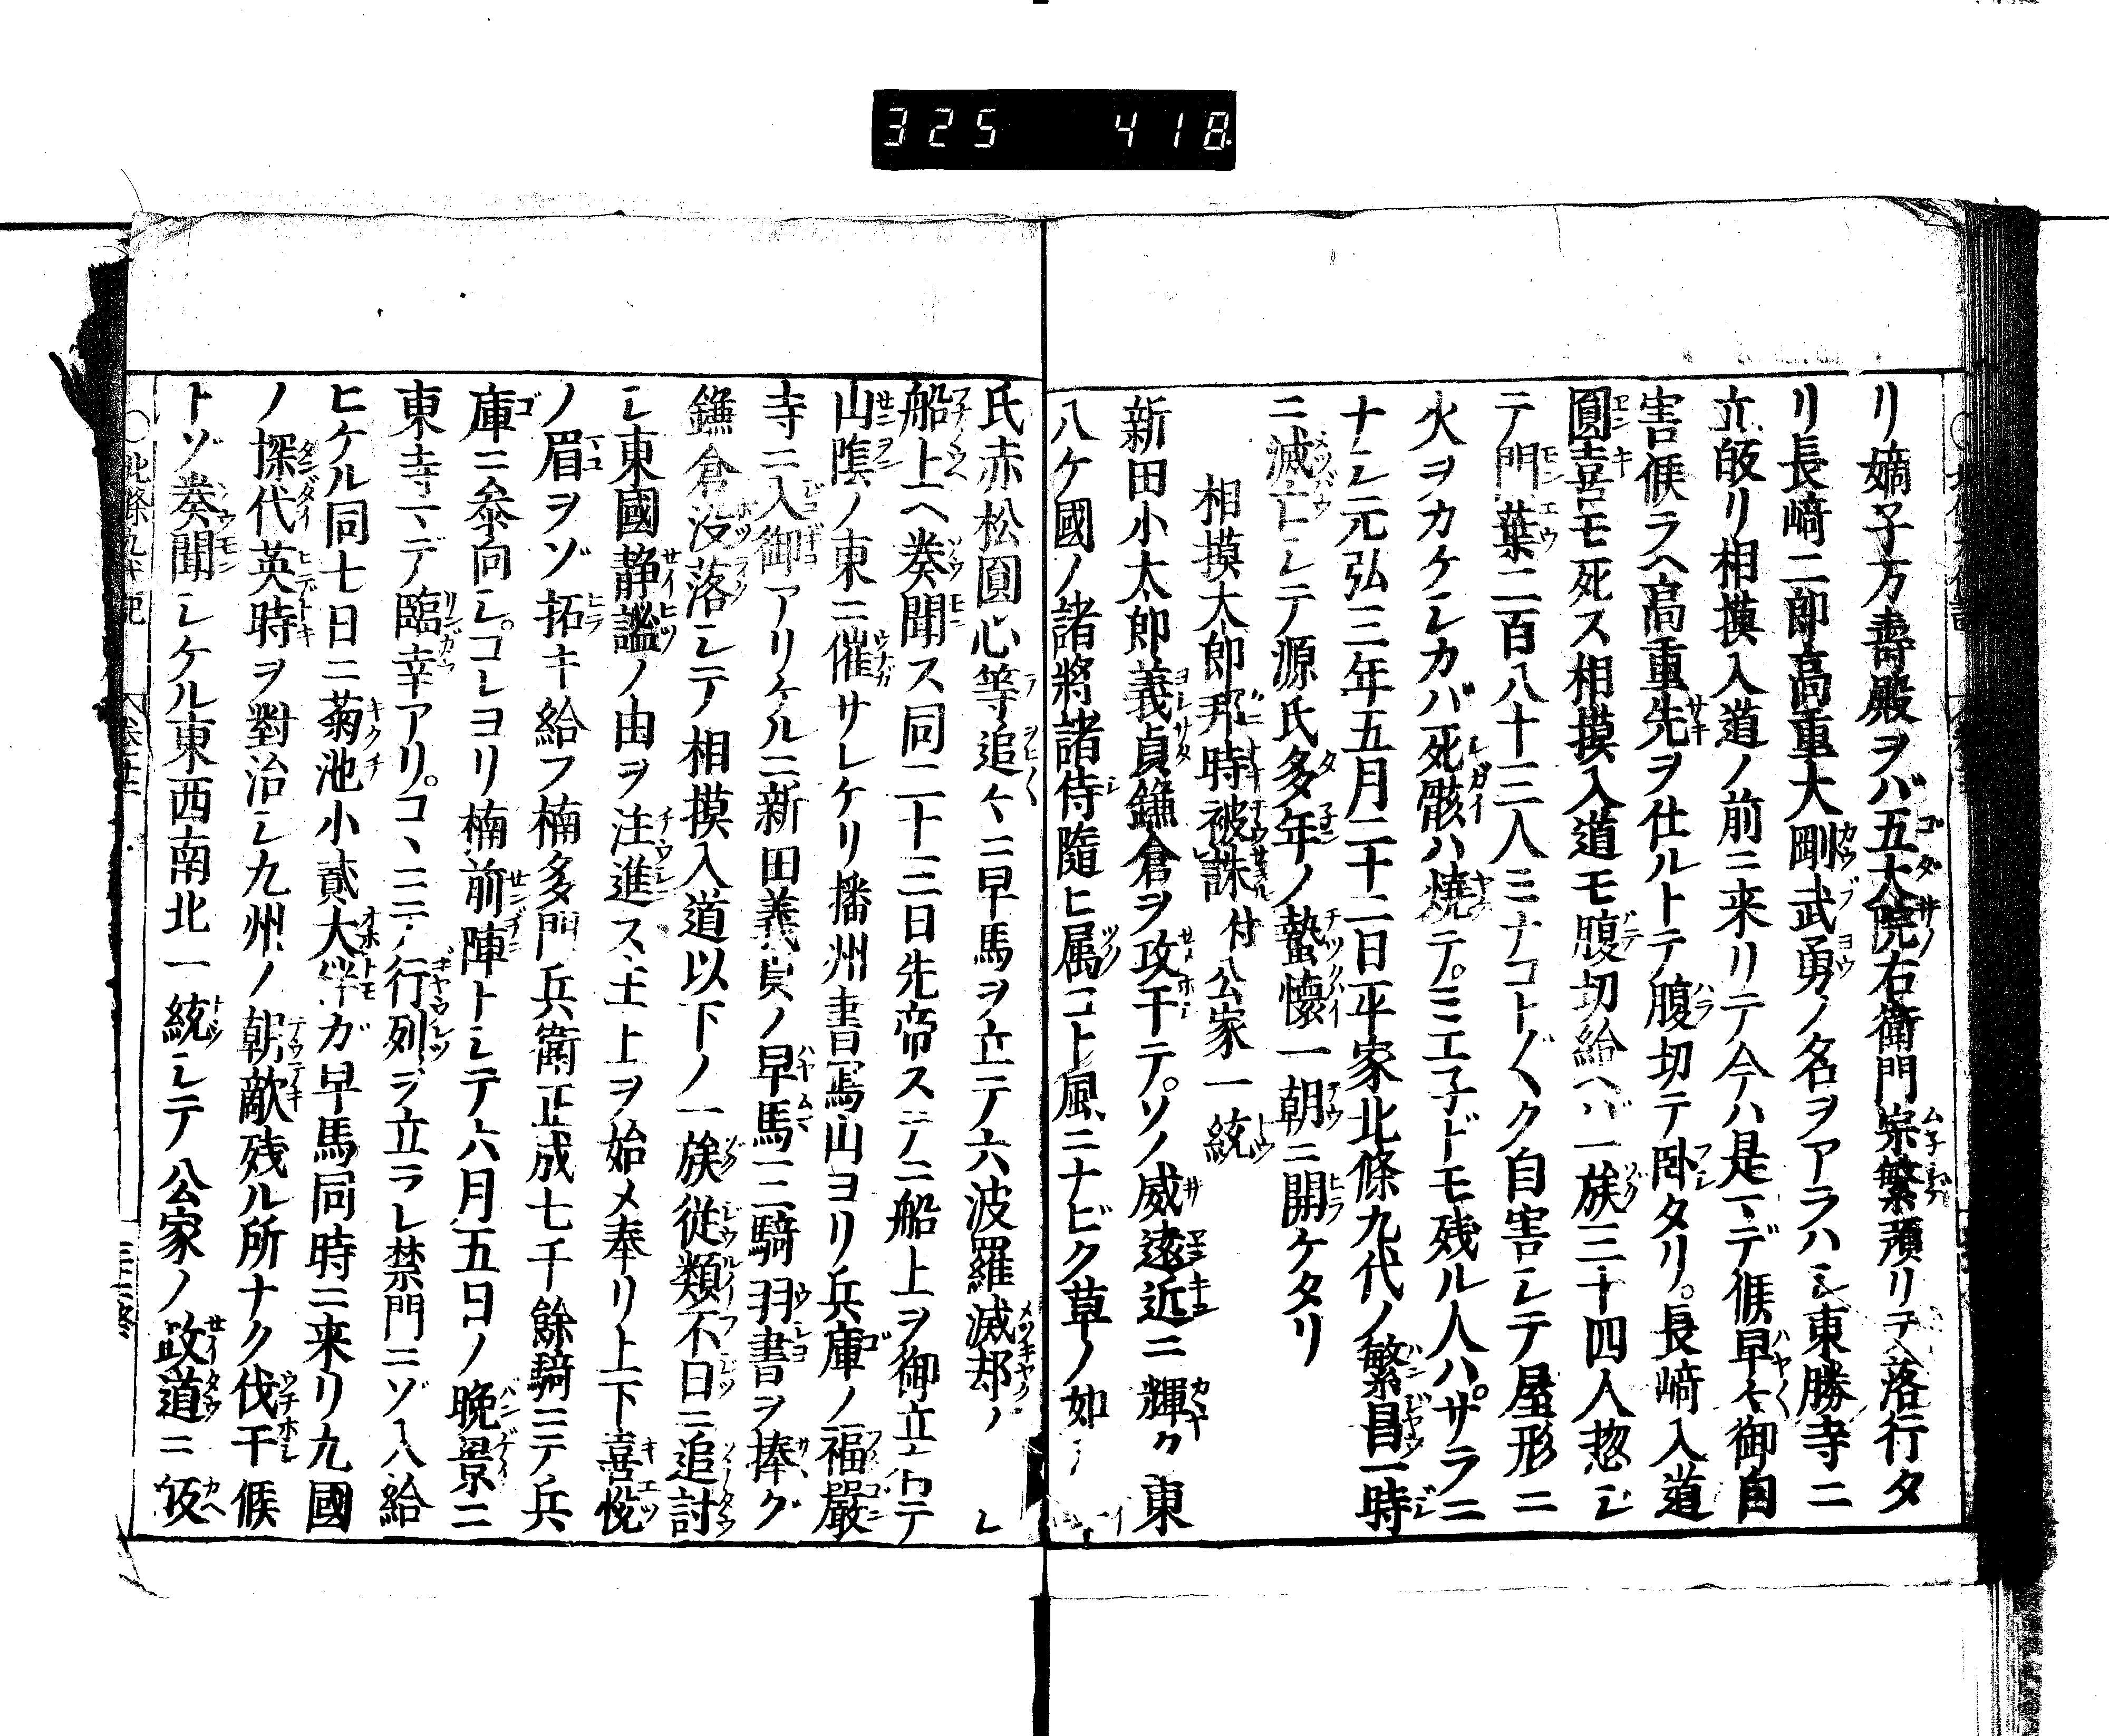 325 418
リ嫡子万壽殿ヲバ五大院右衛門宗繁預リテ落行タ
リ長﨑二郎高重大剛武勇ノ名ヲアラハシ東勝寺ニ
立皈リ相摸入道ノ前ニ来リテ今ハ是マデ候早々御自
害候ラヘ高重先ヲ仕ルトテ腹切テ卧タリ。長﨑入道
圓喜モ死ス相摸入道モ腹切給ヘバ一族三十四人惣ジ
テ門葉二百八十三人ミナコト〴〵ク自害シテ屋形ニ
火ヲカケシカバ死骸ハ焼テ。ミエ子ドモ残ル人ハザラニ
ナシ元弘三年五月二十二日平家北條九代ノ繁昌一時
ニ滅亡シテ源氏多年ノ蟄懐一朝ニ開ケタリ
相摸太郎邦時被誅 付 公家一統
新田小太郎義貞鎌倉ヲ攻干テ。ソノ威遠近ニ輝ク東
八ケ國ノ諸將諸侍隨ヒ属コト風ニナビク草ノ如
氏赤松圓心等追々ニ早馬ヲ立テ六波羅滅却ノ
船上ヘ奏聞ス同二十三日先帝スデニ船上ヲ御立有テ
山陰ノ東ニ催サレケリ播州書寫山ヨリ兵庫ノ福嚴
寺ニ入御アリケルニ新田義貞ノ早馬三騎羽書ヲ捧グ
鎌倉没落シテ相摸入道以下ノ一族従類不日ニ追討
シ東國静謐ノ由ヲ注進ス主上ヲ始メ奉リ上下喜悦
ノ眉ヲゾ拓キ給フ楠多門兵衛正成七千餘騎ニテ兵
庫ニ参向シ。コレヨリ楠前陣トシテ六月五日ノ晩景ニ
東寺マデ臨幸アリ。コヽニテ行列ヲ立ラレ禁門ニゾ入給
ヒケル同七日ニ菊池小貳大伴ガ早馬同時ニ来リ九國
ノ探代英時ヲ對治シ九州ノ朝敵残ル所ナク伐干候
トゾ奏聞シケル東西南北一統シテ公家ノ政道ニ皈